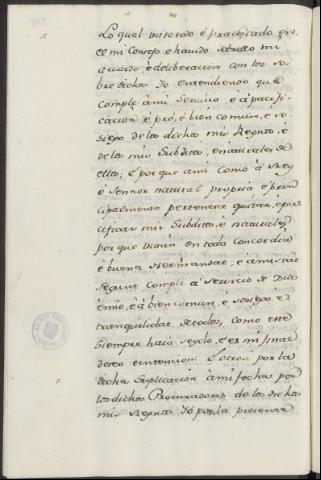 Lo qual visto todo é practicado en
el mi Consejo é havido sobrello mi
acuerdo, é deliberacion con los so-
bredichos Yo entendiendo que
comple à mi Servicio, e á pacifi-
cacion é pró, é bien comun, é so-
siego de los dichos mis Regnos, é
de los mis Subditos, é naturales de
ellos; é porque ami como á Rey
é Sennor natural propria é prin-
cipalmente pertenece quitar, é pa-
cificar mis Subditos, é naturales
porque vivan en toda Concordia
é buena Hermandad, é amistad
segunt comple á Servicio de Dios
é mio, é á bien comun, é sosiego, é
tranquilidat de todos, como este
siempre haia seydo, é es mi
deseo é intencion: E otrosi por la
dicha Suplicacion á mi fecha por
los dichos Procuradores de los dichos
mis Regnos, Yo por la presente